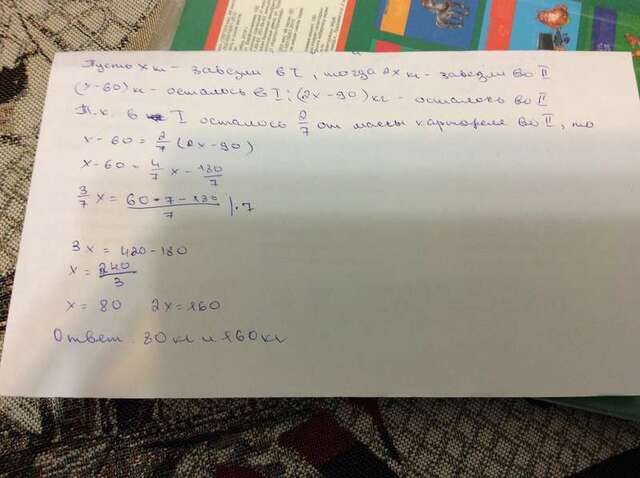 Пусть x кг - завезли в I, тогда 2x кг - завезли во II
(x-60) кг - осталось в I; (2x-90) кг - осталось во II
Т.к. в I осталось 2/7 от массы картофеля во II, то
x-60 = 2/7 (2x-90)
x-60 = 4/7 x - 180/7
3/7 x = (60·7-180)/7 |·7
3x = 420-180
x = 240/3
x = 80 2x = 160
Ответ: 80 кг и 160 кг